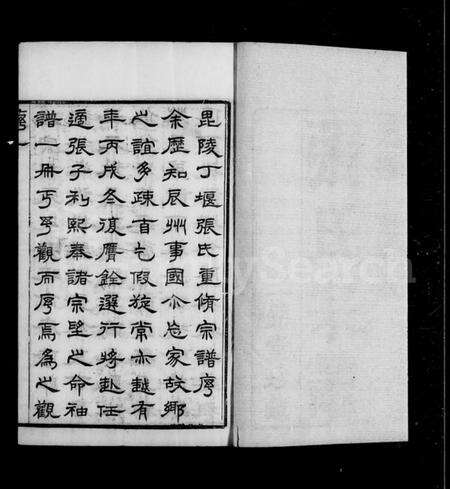 毘陵丁堰張氏重脩宗譜序
余歷知辰州事國尒忘家故鄉
之誼多疎百乞假旋常亦越有
年丙戌冬復膺銓選行將赴任
適張子利熙奉諸宗望之命袖
譜一冊丐予觀而序焉爲之觀
序一